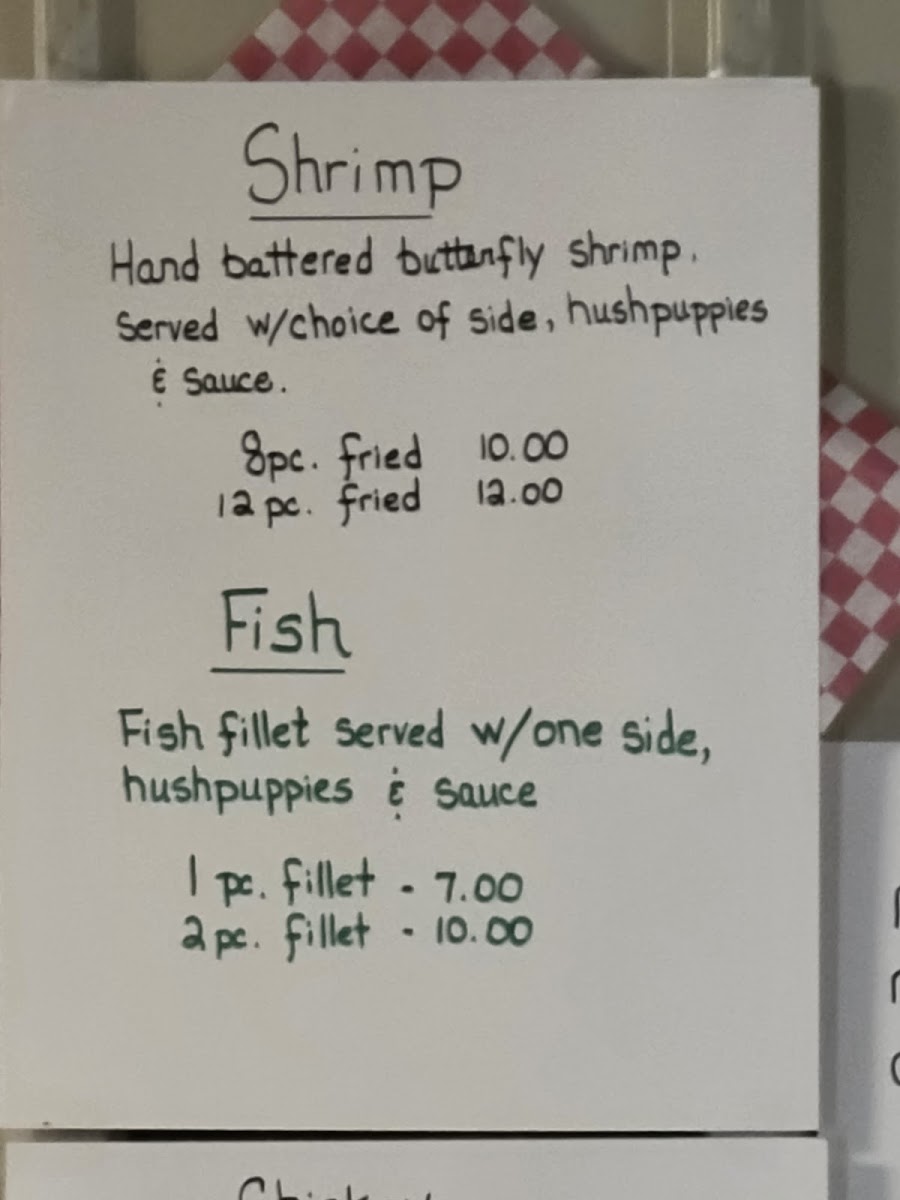 Shrimp
Hand battered butterfly shrimp.
Served w/choice of side, hushpuppies
& Sauce.
8pc. fried 10.00
12 pc. fried 12.00
Fish
Fish fillet served w/one side,
hushpuppies & sauce
1 pc. fillet - 7.00
2 pc. fillet - 10.00